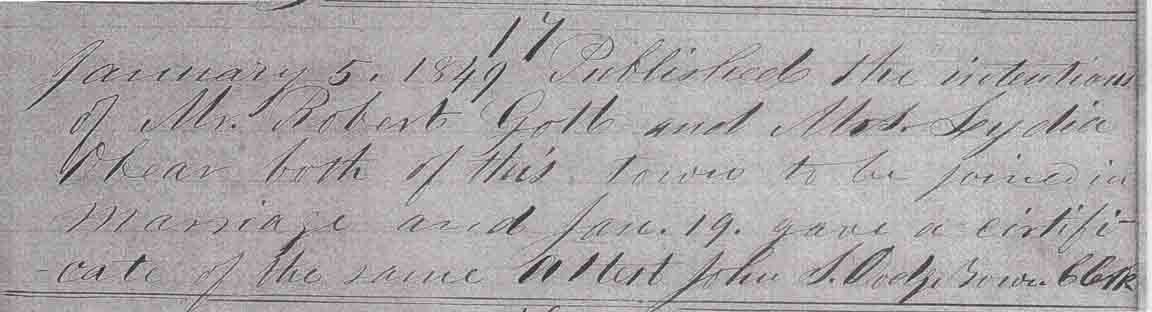 17
January 5. 1849 Published the intentions
of Mr. Robert Gott and Mrs. Lydia
Obear both of this town to be joined in
Marriage and Jan. 19. gave a cirtifi-
-cate of the same Attest John S. Dodge Town Clerk